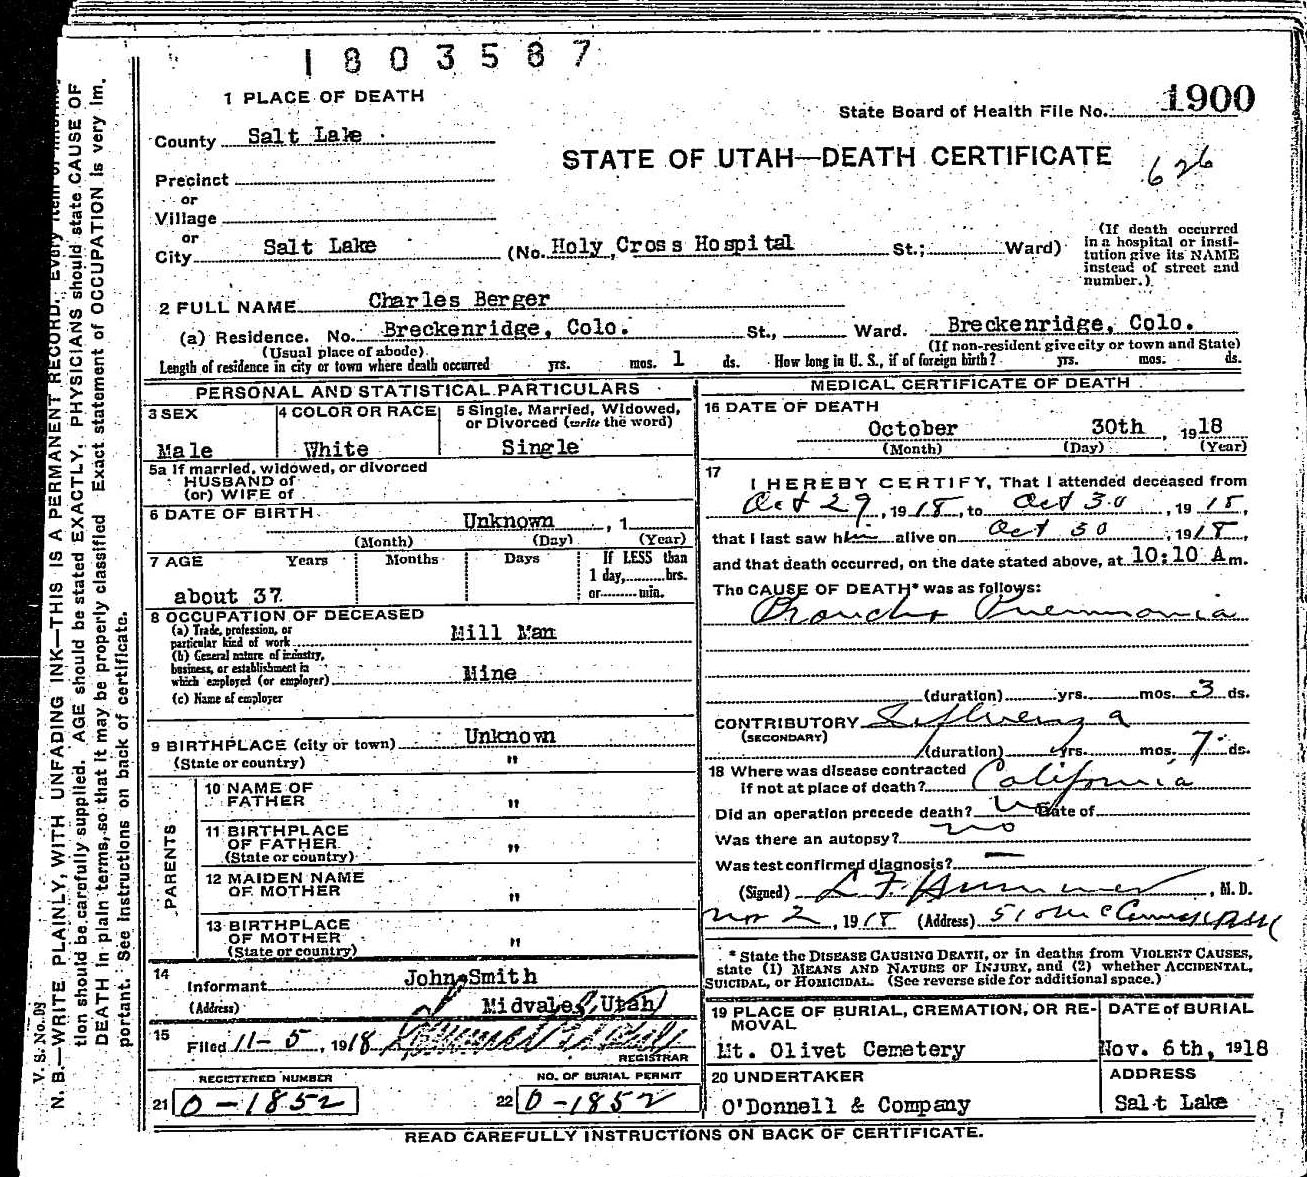 1803587
1 PLACE OF DEATH
State Board of Health File No. 1900
County Salt Lake
STATE OF UTAH—DEATH CERTIFICATE
626
Precinct
or
Village
or
City Salt Lake (No. Holy Cross Hospital St.; Ward)
(If death occurred
in a hospital or insti-
tution give its NAME
instead of street and
number.)
2 FULL NAME Charles Berger
(a) Residence. No. Breckenridge, Colo. St., Ward. Breckenridge, Colo.
(Usual place of abode) (If non-resident give city or town and State)
Length of residence in city or town where death occurred yrs. mos. 1 ds. How long in U. S., if of foreign birth? yrs. mos. ds.
PERSONAL AND STATISTICAL PARTICULARS
3 SEX
Male
4 COLOR OR RACE
White
5 Single, Married, Widowed,
or Divorced (write the word)
Single
5a If married, widowed, or divorced
HUSBAND of
(or) WIFE of
6 DATE OF BIRTH
Unknown , 1
(Month) (Day) (Year)
7 AGE Years Months Days If LESS than
1 day, hrs.
or min.
about 37
8 OCCUPATION OF DECEASED
(a) Trade, profession, or
particular kind of work Mill Man
(b) General nature of industry,
business, or establishment in
which employed (or employer) Mine
(c) Name of employer
9 BIRTHPLACE (city or town) Unknown
(State or country) "
PARENTS
10 NAME OF
FATHER "
11 BIRTHPLACE
OF FATHER "
(State or country)
12 MAIDEN NAME
OF MOTHER "
13 BIRTHPLACE
OF MOTHER "
(State or country)
14
Informant John Smith
(Address) Midvale, Utah
15
Filed 11-5, 1918
REGISTRAR
REGISTERED NUMBER
21 0-1852
NO. OF BURIAL PERMIT
22 0-1852
MEDICAL CERTIFICATE OF DEATH
16 DATE OF DEATH
October 30th, 1918
(Month) (Day) (Year)
17
I HEREBY CERTIFY, That I attended deceased from
Oct 29, 1918, to Oct 30, 1918,
that I last saw him alive on Oct 30, 1918,
and that death occurred, on the date stated above, at 10:10 A m.
The CAUSE OF DEATH* was as follows:
Broncho Pneumonia
(duration) yrs. mos. 3 ds.
CONTRIBUTORY Influenza
(SECONDARY)
(duration) yrs. mos. 7 ds.
18 Where was disease contracted
if not at place of death? California
Did an operation precede death? no Date of
Was there an autopsy? no
Was test confirmed diagnosis? —
(Signed) L. F. Hummer, M. D.
Nov 2, 1918 (Address) 510
* State the DISEASE CAUSING DEATH, or in deaths from VIOLENT CAUSES,
state (1) MEANS AND NATURE OF INJURY, and (2) whether ACCIDENTAL,
SUICIDAL, or HOMICIDAL. (See reverse side for additional space.)
19 PLACE OF BURIAL, CREMATION, OR RE-
MOVAL
Mt. Olivet Cemetery
DATE of BURIAL
Nov. 6th, 1918
20 UNDERTAKER
O'Donnell & Company
ADDRESS
Salt Lake
READ CAREFULLY INSTRUCTIONS ON BACK OF CERTIFICATE.
V. S. No.
N. B.—WRITE PLAINLY, WITH UNFADING INK—THIS IS A PERMANENT RECORD. Every item of
tion should be carefully supplied. AGE should be stated EXACTLY. PHYSICIANS should state CAUSE OF
DEATH in plain terms, so that it may be properly classified. Exact statement of OCCUPATION is very im-
portant. See instructions on back of certificate.